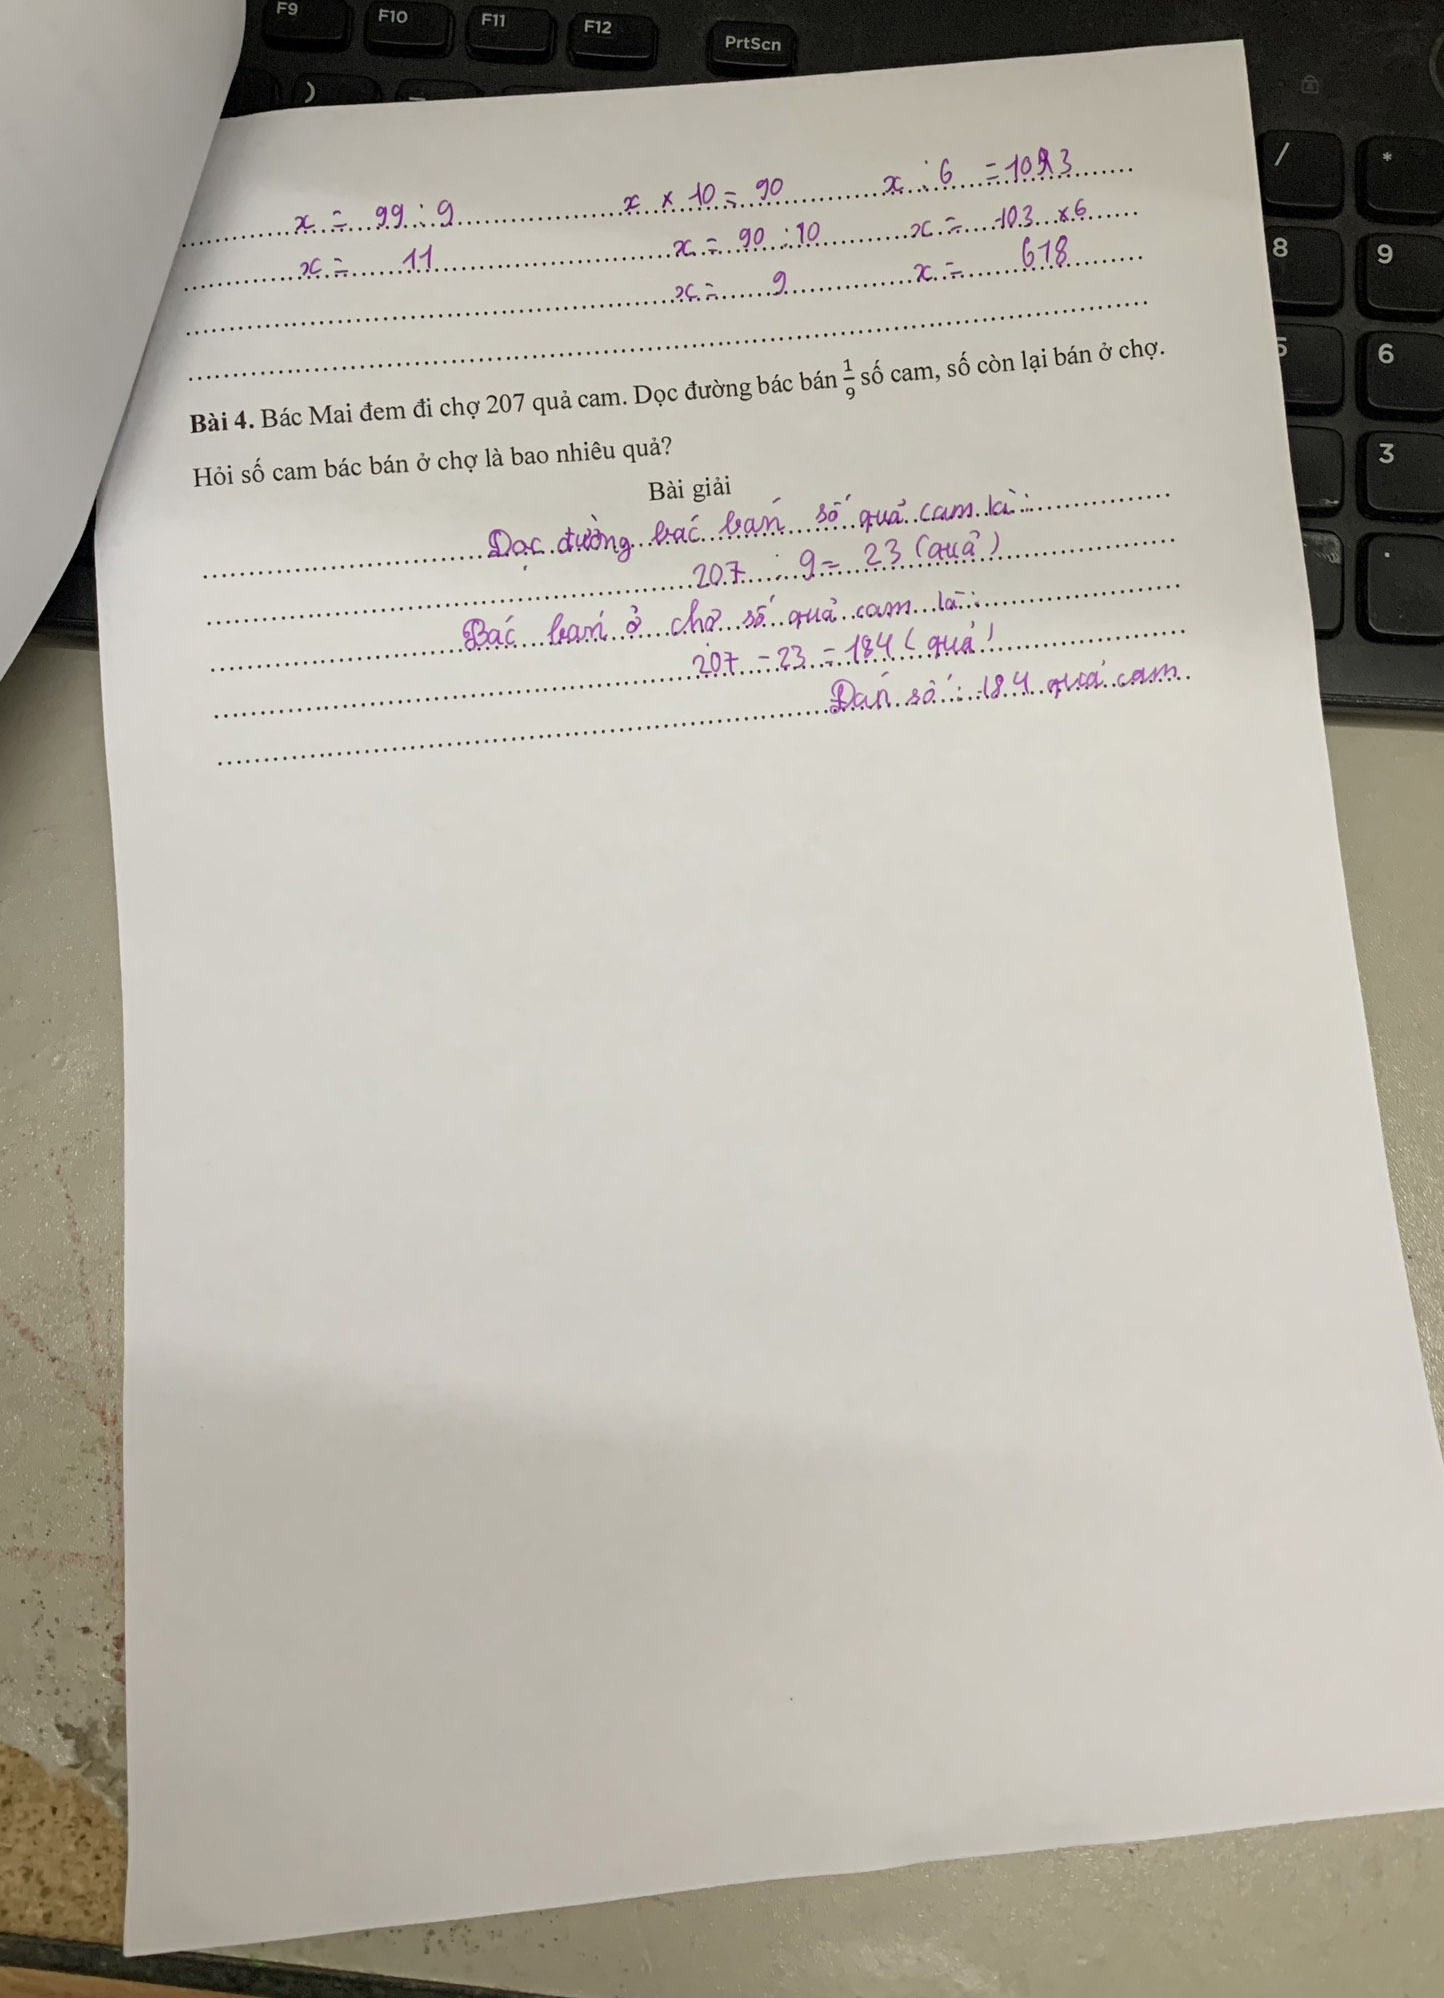 F9 F10 F11 F12 PrtScn
)
/ *
8 9
5 6
3
.
x = 99 : 9 x × 10 = 90 x : 6 = 103
x = 11 x = 90 : 10 x = 103 × 6
x = 9 x = 618
Bài 4. Bác Mai đem đi chợ 207 quả cam. Dọc đường bác bán 1/9 số cam, số còn lại bán ở chợ.
Hỏi số cam bác bán ở chợ là bao nhiêu quả?
Bài giải
Dọc đường bác bán số quả cam là:
207 : 9 = 23 (quả)
Bác bán ở chợ số quả cam là:
207 - 23 = 184 (quả)
Đán số: 184 quả cam.